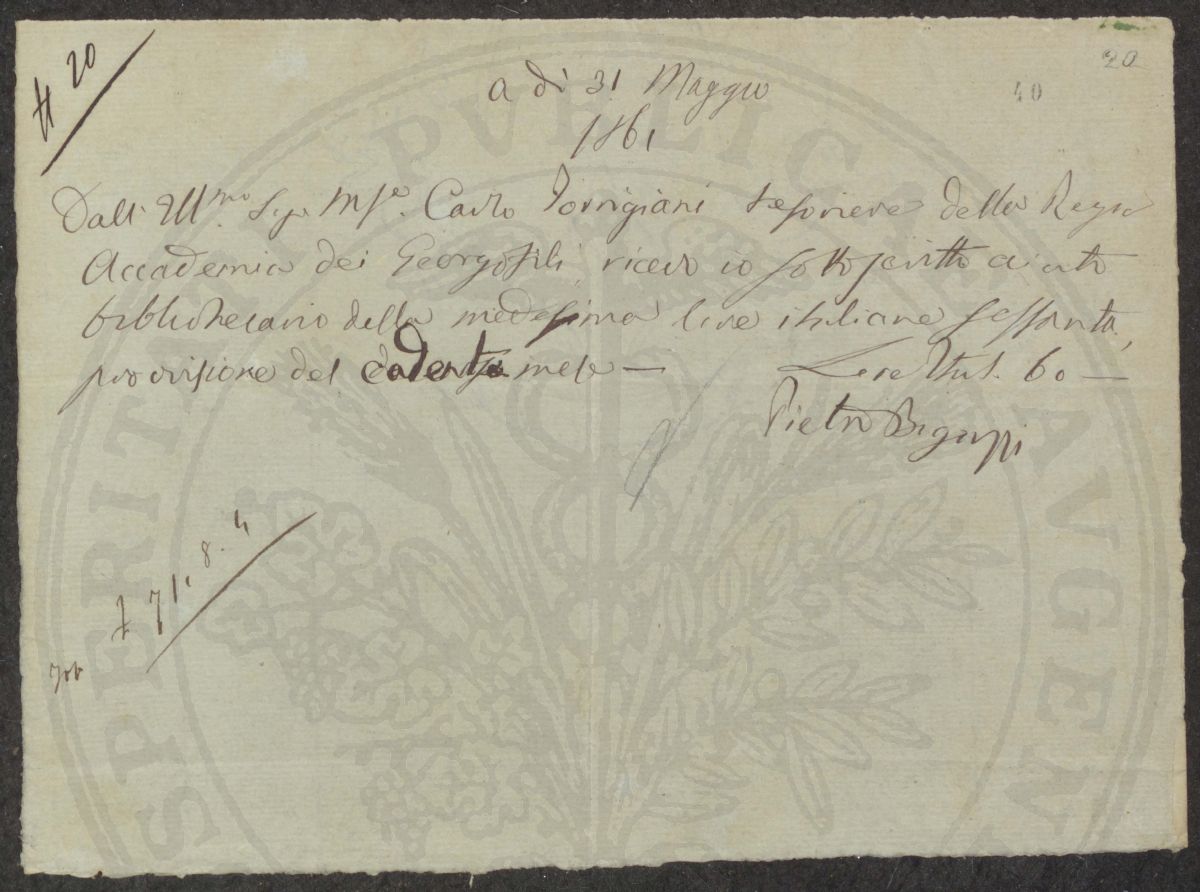 # 20
20
40
a dì 31 Maggio
1861
Dall' Ill.mo Sig. M.se Carlo Torrigiani tesoriere della Regia
Accademia dei Georgofili, ricevo io sottoscritto aiuto
bibliotecario della medesima lire italiane sessanta,
provvisione del cadente mese — Lire Ital. 60 —
Pietro Bigazzi
£ 71. 8. 4
PROSPERITATI PVBLICAE AVGENDAE